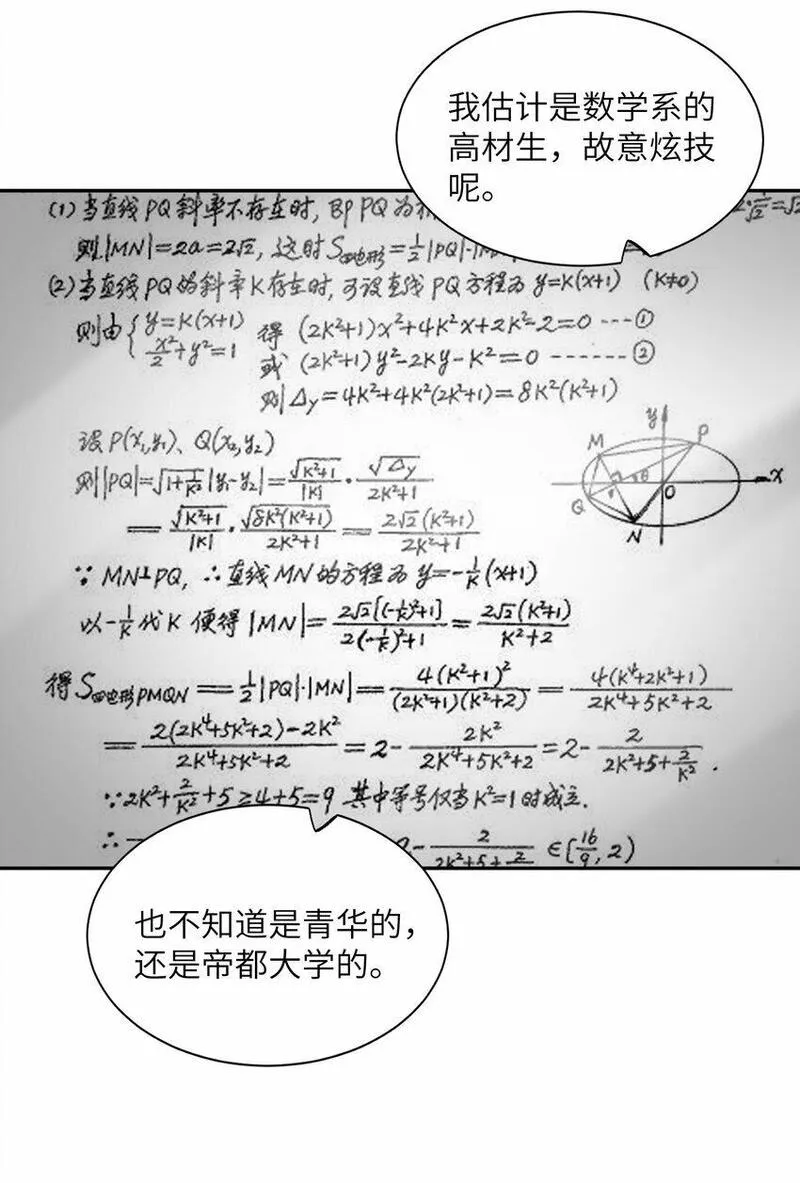 我估计是数学系的
高材生，故意炫技
呢。
(1)当直线PQ斜率不存在时,BP PQ为
则|MN|=2a=2√2, 这时S四边形=½|PQ|·|M
(2)当直线PQ的斜率K存在时,可设直线PQ方程为y=K(x+1) (K≠0)
则由{y=K(x+1) 得 (2K²+1)x²+4K²x+2K²-2=0 ---①
x²/2+y²=1 或 (2K²+1)y²-2Ky-K²=0 ------②
则Δy=4K²+4K²(2K²+1)=8K²(K²+1)
设P(x₁,y₁)、Q(x₂,y₂)
则|PQ|=√(1+1/K²)|y₁-y₂|=√(K²+1)/|K|·√Δy/(2K²+1)
=√(K²+1)/|K|·√(8K²(K²+1))/(2K²+1)=2√2(K²+1)/(2K²+1)
y
M
P
Q
O
x
N
∵MN⊥PQ,∴直线MN的方程为y=-1/K(x+1)
以-1/K代K便得|MN|=2√2[(-1/K)²+1]/(2(-1/K)²+1)=2√2(K²+1)/(K²+2)
得S四边形PMQN=½|PQ|·|MN|=4(K²+1)²/((2K²+1)(K²+2))=4(K⁴+2K²+1)/(2K⁴+5K²+2)
=(2(2K⁴+5K²+2)-2K²)/(2K⁴+5K²+2)=2-2K²/(2K⁴+5K²+2)=2-2/(2K²+5+2/K²).
∵2K²+2/K²+5≥4+5=9 其中等号仅当K²=1时成立.
∴ 2-2/(2K²+5+2/ ∈[16/9,2)
也不知道是青华的，
还是帝都大学的。